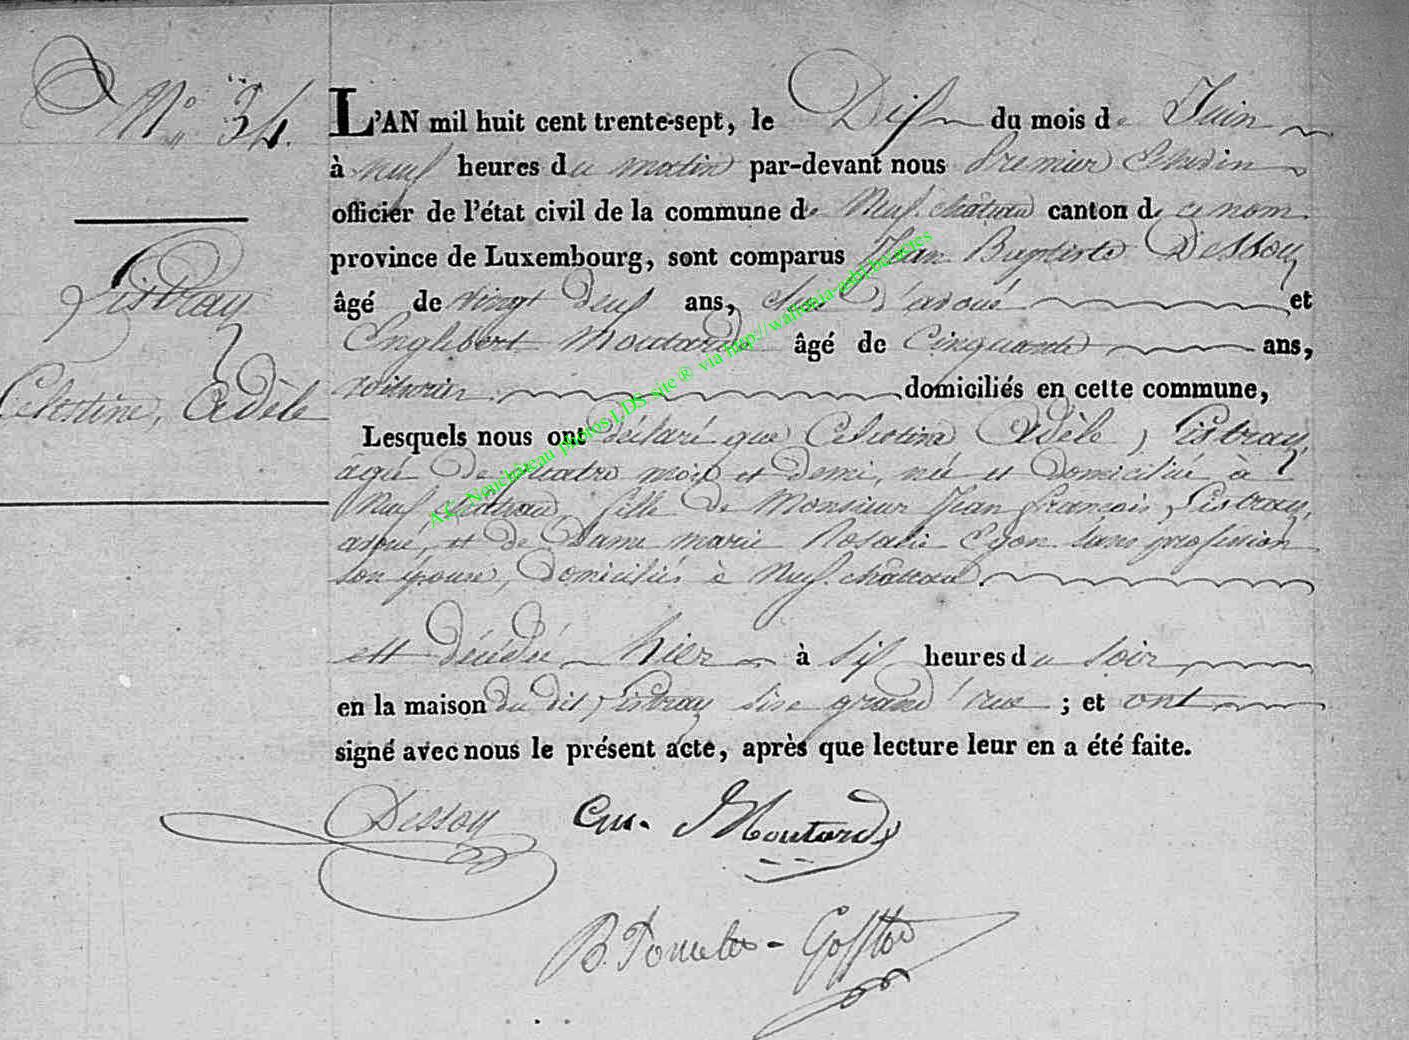 N° 34.
L'AN mil huit cent trente-sept, le Dix du mois de Juin
à neuf heures du matin par-devant nous Premier Echevin
officier de l'état civil de la commune de Neuf-château canton de ce nom
province de Luxembourg, sont comparus Jean Baptiste Dessoy
âgé de vingt deux ans, clerc d'avoué et
Englebert Moutarde âgé de Cinquante ans,
voiturier domiciliés en cette commune,
Lesquels nous ont déclaré que Celestine Adèle
âgée de quatre mois et demi, née et domiciliée à
Neuf château fille de Monsieur Jean françois
avoué, et de Dame marie Rosalie sans profession
son épouse, domiciliés à Neuf-château.
est décédée hier à six heures du soir
en la maison du dit sise grand'rue ; et ont
signé avec nous le présent acte, après que lecture leur en a été faite.
Celestine, Adèle
Dessoy
Moutarde
A.C. Neuchâteau photos LDS site ® via http://wallonia-asbl.be/actes